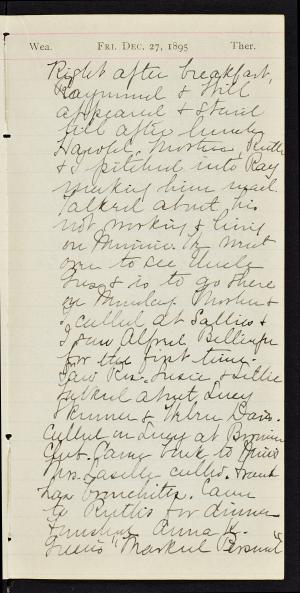 Wea. FRI. DEC. 27, 1895 Ther.
Right after breakfast,
Raymond & Will
appeared & staid
till after lunch
Harold, Mother, Ruth
& I pitched into Ray
making him mad.
Talked about his
not working & living
on Minnie. He went
over to see Uncle
Gus & is to go there
on Monday. Mother &
I called at Sallie's &
I saw Alfred Bellinger
for the first time.
Saw Susie & Lillie
talked about Lucy
Skinner & Davis.
Called on Lucy at
Club. Came back to
Mrs. called. Frank
has bronchitis. Came
to Ruth's for dinner
& finished Anna K.
Green's "Marked Personal"